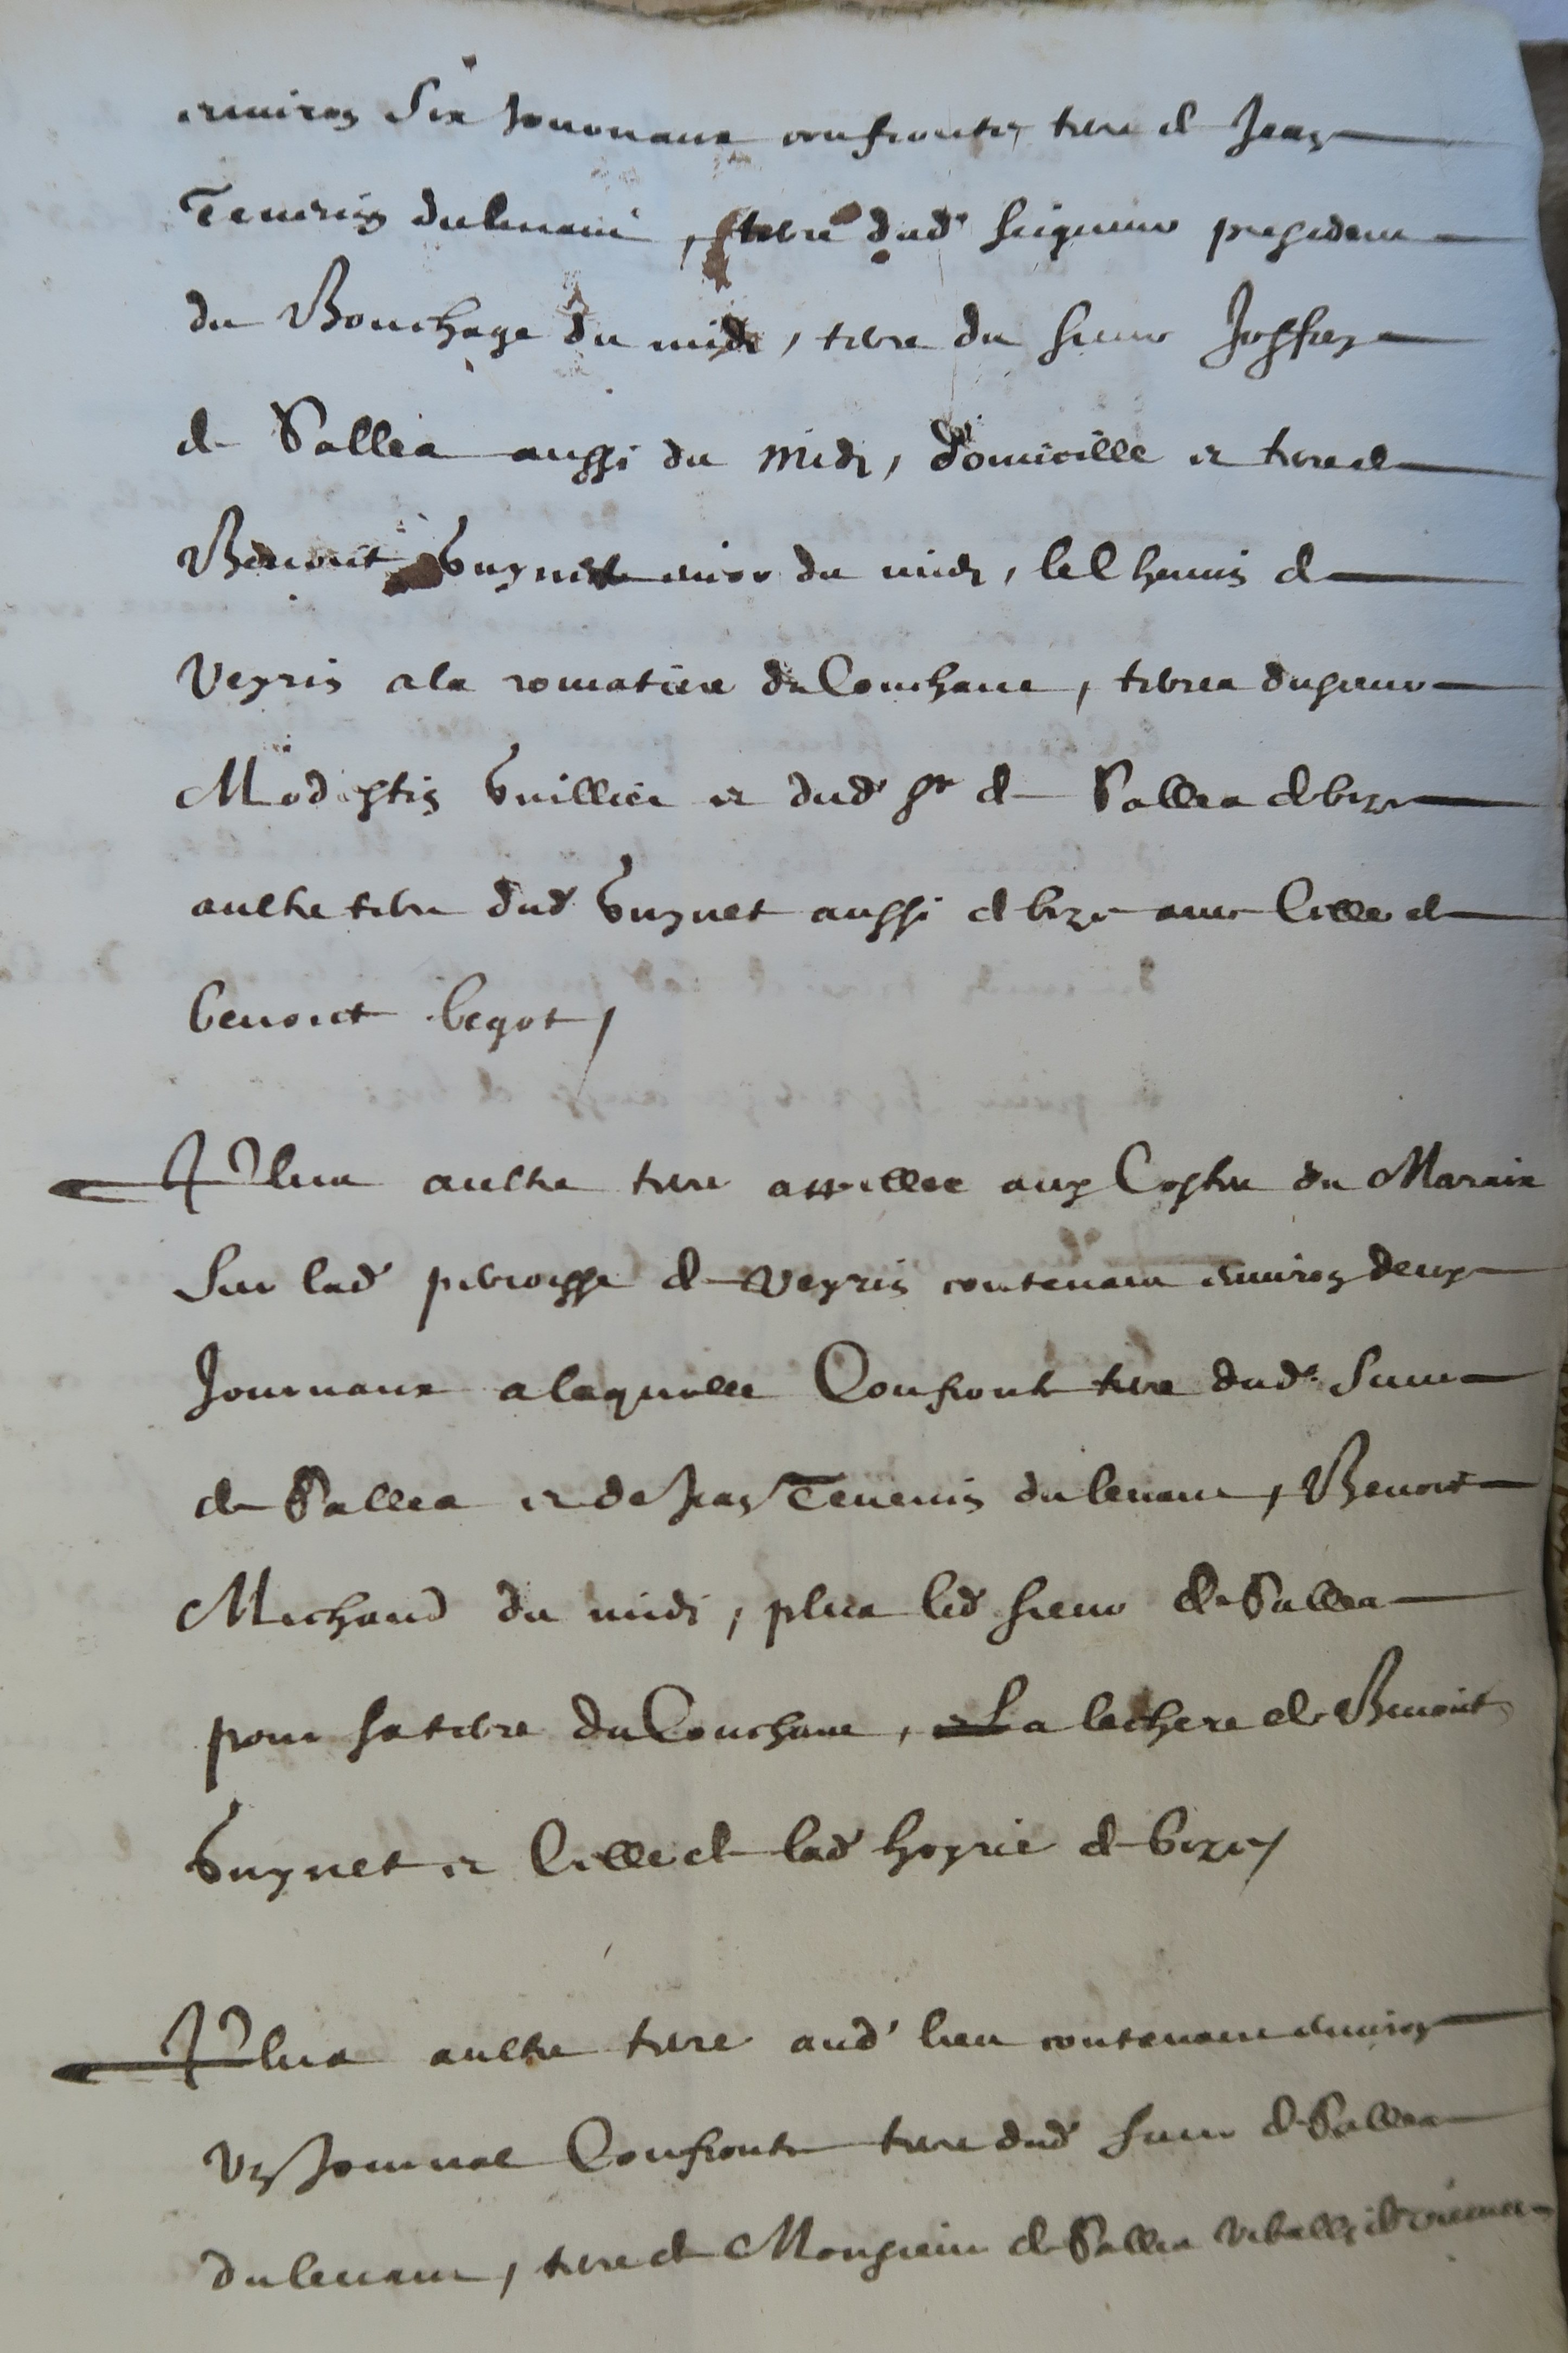 environ six Journaux confronte, terre de Jean
Tevenin du levant, terre dud' seigneur president
du Bouchage du midi, terre du sieur Joffrey
de Salles aussi du midi, domicille et terre de
Benoit Guynet encor du midi, le Chemin de
Veyrin a la du Couchant, terres du sieur
Modestin Guillier et dud' Sr de Salles de bize
aultre terre dud' Guynet aussi de bize avec Celle de
benoict begot /
Plus aultre terre appellee aux Costes du Marais
Sur lad' perroisse de Veyrin contenant environ deux
Journaux a laquelle Confronte terre dud' Sieur
de Salles et de Jean Tevenin du levant, Benoit
Michaud du midi, plus led' sieur de Salles
pour sa terre du Couchant, La lechere de Benoit
Guynet et Celle de lad' hoyrie de bize /
Plus aultre terre aud' lieu contenant environ
Un Journal Confronte terre dud' sieur de Salles
du levant, terre de Monsieur de Salles de vienne